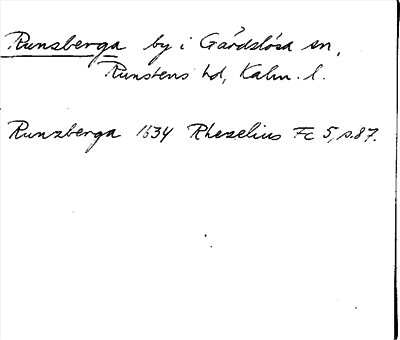 Runsberga by i Gårdslösa sn,
Runstens hd, Kalm. l.
Runsberga 1634 Rhezelius Fc 5, s. 87.